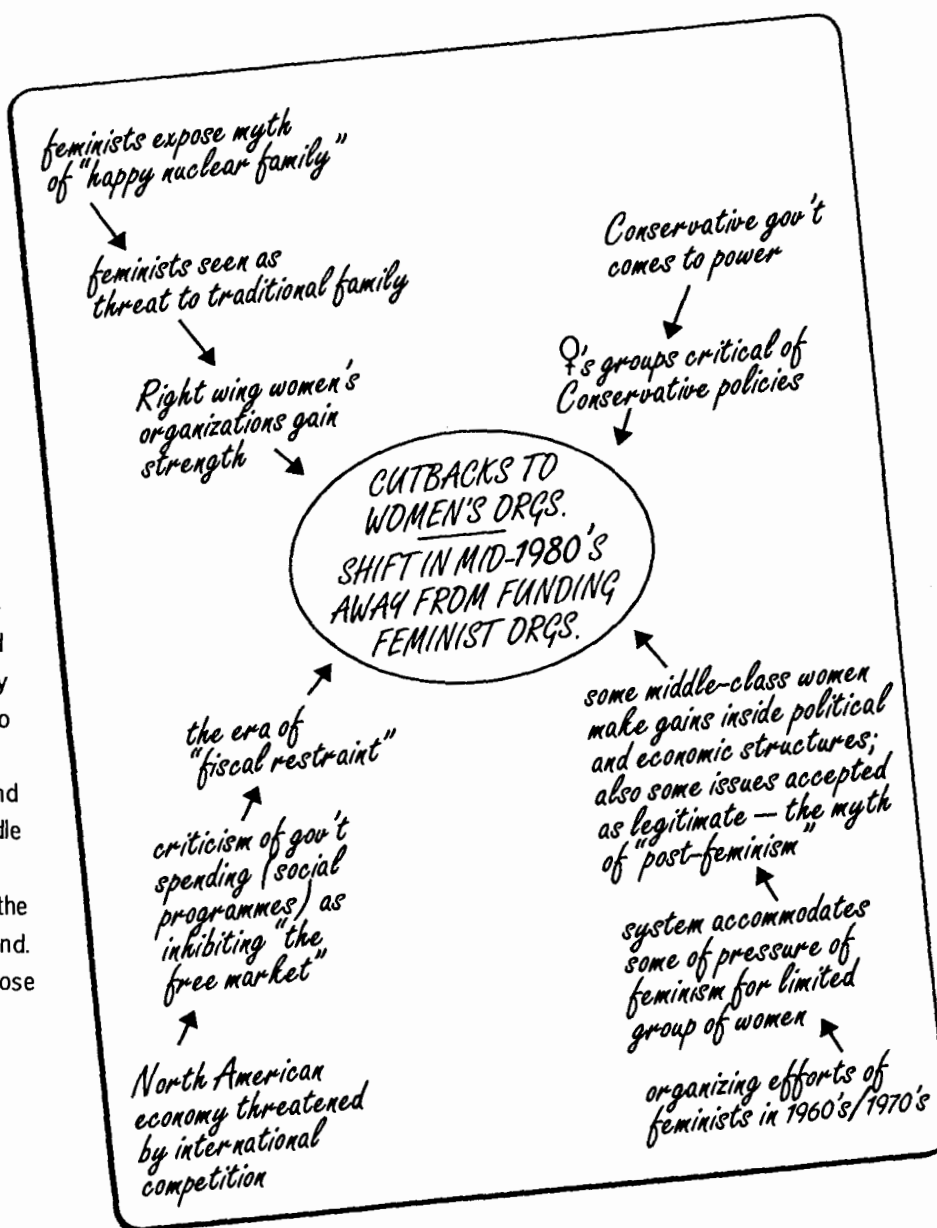 feminists expose myth
of "happy nuclear family"
feminists seen as
threat to traditional family
Right wing women's
organizations gain
strength
Conservative gov't
comes to power
♀'s groups critical of
Conservative policies
CUTBACKS TO
WOMEN'S ORGS.
SHIFT IN MID-1980'S
AWAY FROM FUNDING
FEMINIST ORGS.
the era of
"fiscal restraint"
criticism of gov't
spending (social
programmes) as
inhibiting "the
free market"
North American
economy threatened
by international
competition
some middle-class women
make gains inside political
and economic structures;
also some issues accepted
as legitimate — the myth
of "post-feminism"
system accommodates
some of pressure of
feminism for limited
group of women
organizing efforts of
feminists in 1960's/1970's
the